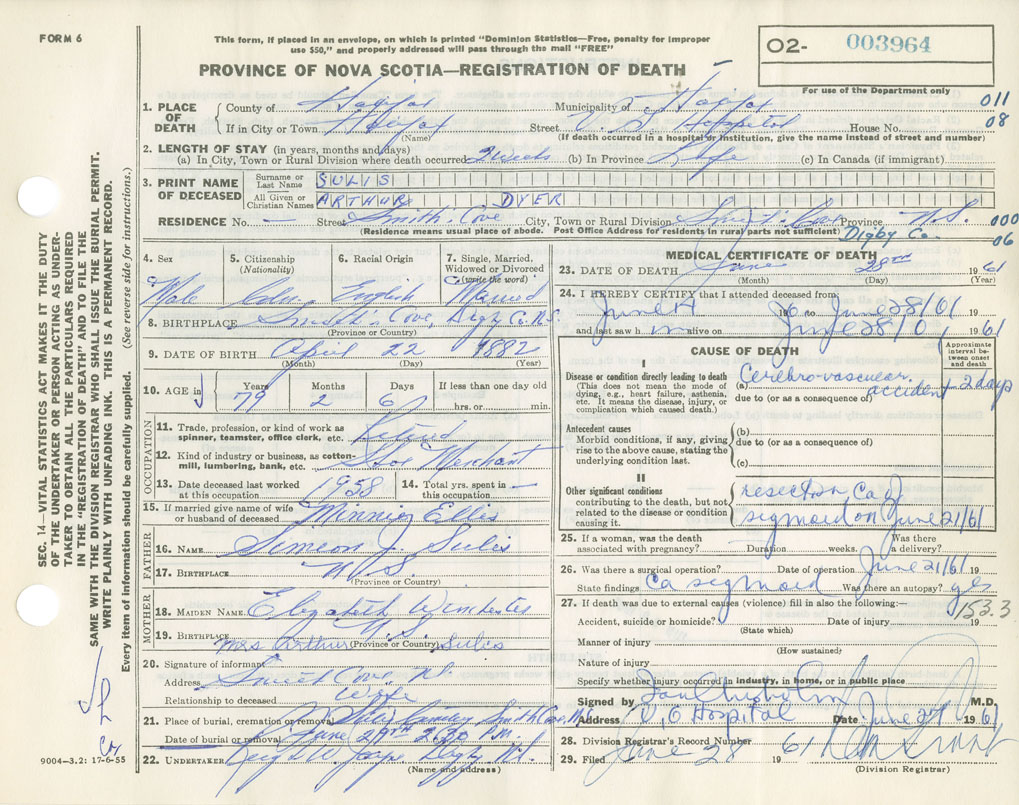 FORM 6
This form, if placed in an envelope, on which is printed "Dominion Statistics—Free, penalty for improper
use $50," and properly addressed will pass through the mail "FREE"
O2- 003964
For use of the Department only
PROVINCE OF NOVA SCOTIA—REGISTRATION OF DEATH
SEC. 14—VITAL STATISTICS ACT MAKES IT THE DUTY
OF THE UNDERTAKER OR PERSON ACTING AS UNDER-
TAKER TO OBTAIN ALL THE PARTICULARS REQUIRED
IN THE "REGISTRATION OF DEATH" AND TO FILE THE
SAME WITH THE DIVISION REGISTRAR WHO SHALL ISSUE THE BURIAL PERMIT.
WRITE PLAINLY WITH UNFADING INK. THIS IS A PERMANENT RECORD.
Every item of information should be carefully supplied. (See reverse side for instructions.)
1. PLACE OF DEATH
County of Halifax Municipality of Halifax 011
If in City or Town Halifax Street V. G. Hospital House No. 08
(Name) (If death occurred in a hospital or institution, give the name instead of street and number)
2. LENGTH OF STAY (in years, months and days)
(a) In City, Town or Rural Division where death occurred 2 Weeks (b) In Province Life (c) In Canada (if immigrant)
3. PRINT NAME OF DECEASED
Surname or Last Name SULIS
All Given or Christian Names ARTHUR DYER
RESIDENCE No. — Street Smith's Cove City, Town or Rural Division Smith's Cove Province N.S. 000
(Residence means usual place of abode. Post Office Address for residents in rural parts not sufficient) Digby Co. 06
4. Sex Male
5. Citizenship (Nationality) Cdn.
6. Racial Origin English
7. Single, Married, Widowed or Divorced (write the word) Married
8. BIRTHPLACE Smith's Cove, Digby Co. N.S.
(Province or Country)
9. DATE OF BIRTH April 22 1882
(Month) (Day) (Year)
10. AGE in Years 79 Months 2 Days 6 If less than one day old
hrs. or min.
OCCUPATION
11. Trade, profession, or kind of work as spinner, teamster, office clerk, etc. Retired
12. Kind of industry or business, as cotton-mill, lumbering, bank, etc. Shoe Merchant
13. Date deceased last worked at this occupation 1958
14. Total yrs. spent in this occupation —
15. If married give name of wife or husband of deceased Minnie Ellis
FATHER
16. NAME Simeon J. Sulis
17. BIRTHPLACE N.S.
(Province or Country)
MOTHER
18. MAIDEN NAME Elizabeth Winchester
19. BIRTHPLACE N.S.
(Province or Country)
20. Signature of informant Mrs Arthur Sulis
Address Smith Cove, N.S.
Relationship to deceased Wife
21. Place of burial, cremation or removal Cemetery Smith Cove, N.S.
Date of burial or removal June 29th 2.30 P.M.
22. UNDERTAKER Digby N.S.
(Name and address)
9004—3.2: 17-6-55
MEDICAL CERTIFICATE OF DEATH
23. DATE OF DEATH June 28th 1961
(Month) (Day) (Year)
24. I HEREBY CERTIFY that I attended deceased from
June 19 to June 28/61
and last saw him alive on June 28 1961
CAUSE OF DEATH
Approximate interval between onset and death
I
Disease or condition directly leading to death
(This does not mean the mode of dying, e.g., heart failure, asthenia, etc. It means the disease, injury, or complication which caused death.)
(a) Cerebro-vascular accident 2 days
due to (or as a consequence of)
Antecedent causes
Morbid conditions, if any, giving rise to the above cause, stating the underlying condition last.
(b)
due to (or as a consequence of)
(c)
II
Other significant conditions contributing to the death, but not related to the disease or condition causing it.
resection Ca of
sigmoid on June 21/61
25. If a woman, was the death associated with pregnancy? Duration weeks. Was there a delivery?
26. Was there a surgical operation? Date of operation June 21/61 19
State findings Ca sigmoid Was there an autopsy? yes
27. If death was due to external causes (violence) fill in also the following:— 153.3
Accident, suicide or homicide? Date of injury 19
(State which)
Manner of injury
(How sustained)
Nature of injury
Specify whether injury occurred in industry, in home, or in public place
Signed by Ian Chisholm M.D.
Address V. G Hospital Date June 29 1961
28. Division Registrar's Record Number
29. Filed June 28 1961
(Division Registrar)